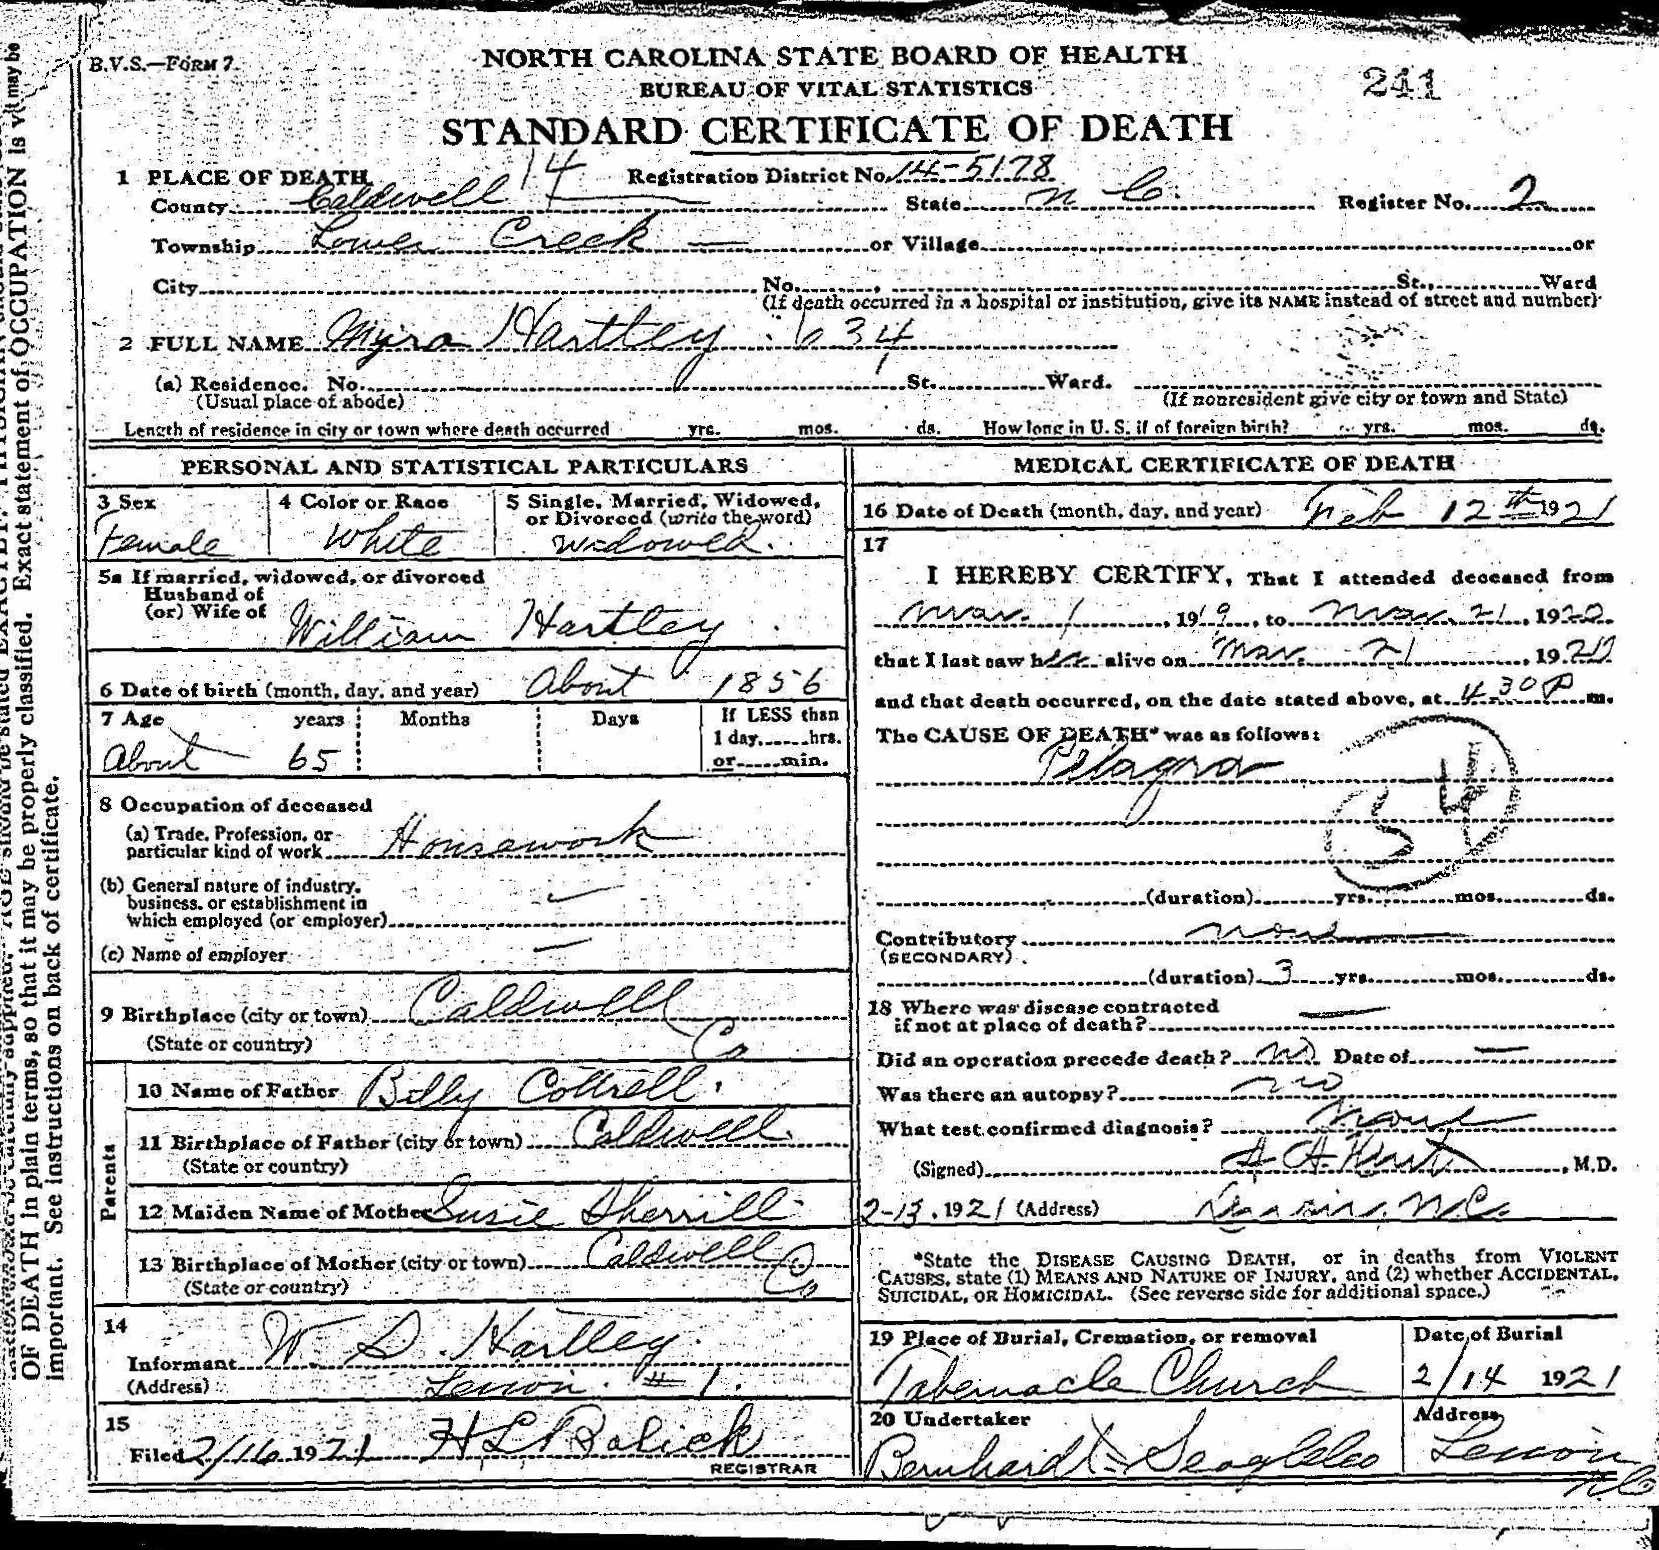 B.V.S.—FORM 7.
NORTH CAROLINA STATE BOARD OF HEALTH
BUREAU OF VITAL STATISTICS
241
STANDARD CERTIFICATE OF DEATH
1 PLACE OF DEATH 14 Registration District No. 14-5178
County Caldwell State N C. Register No. 2
Township Lower Creek or Village or
City No. , St., Ward
(If death occurred in a hospital or institution, give its NAME instead of street and number)
2 FULL NAME Myra Hartley 634
(a) Residence. No. St. Ward.
(Usual place of abode) (If nonresident give city or town and State)
Length of residence in city or town where death occurred yrs. mos. ds. How long in U. S. if of foreign birth? yrs. mos. ds.
PERSONAL AND STATISTICAL PARTICULARS
3 Sex 4 Color or Race 5 Single, Married, Widowed,
or Divorced (write the word)
Female White Widowed.
5a If married, widowed, or divorced
Husband of
(or) Wife of William Hartley
6 Date of birth (month, day, and year) About 1856
7 Age years Months Days If LESS than
1 day, hrs.
About 65 or min.
8 Occupation of deceased
(a) Trade, Profession, or
particular kind of work Housework
(b) General nature of industry,
business, or establishment in
which employed (or employer)
(c) Name of employer
9 Birthplace (city or town) Caldwell
(State or country) Co
Parents
10 Name of Father Billy Cottrell
11 Birthplace of Father (city or town) Caldwell.
(State or country)
12 Maiden Name of Mother Susie Sherrill
13 Birthplace of Mother (city or town) Caldwell
(State or country) Co
14
Informant W. S. Hartley
(Address) Lenoir. # 1.
15
Filed 2/16 1921 H L Bolick
REGISTRAR
MEDICAL CERTIFICATE OF DEATH
16 Date of Death (month, day, and year) Feb 12th 1921
17
I HEREBY CERTIFY, That I attended deceased from
Mar. 1, 1919, to Mar. 21, 1920
that I last saw her alive on Mar. 21, 1920
and that death occurred, on the date stated above, at 4-30 P m.
The CAUSE OF DEATH* was as follows:
Pelagra
54
(duration) yrs. mos. ds.
Contributory none
(SECONDARY)
(duration) 3 yrs. mos. ds.
18 Where was disease contracted
if not at place of death?
Did an operation precede death? no Date of
Was there an autopsy? no
What test confirmed diagnosis? none
(Signed) A A Kent, M.D.
2-13, 1921 (Address) Lenoir, N.C.
*State the DISEASE CAUSING DEATH, or in deaths from VIOLENT
CAUSES, state (1) MEANS AND NATURE OF INJURY, and (2) whether ACCIDENTAL,
SUICIDAL, OR HOMICIDAL. (See reverse side for additional space.)
19 Place of Burial, Cremation, or removal Date of Burial
Tabernacle Church 2/14 1921
20 Undertaker Address
Bernhardt-Seagle Co Lenoir
N C
OF DEATH in plain terms, so that it may be properly classified. Exact statement of OCCUPATION is
important. See instructions on back of certificate.